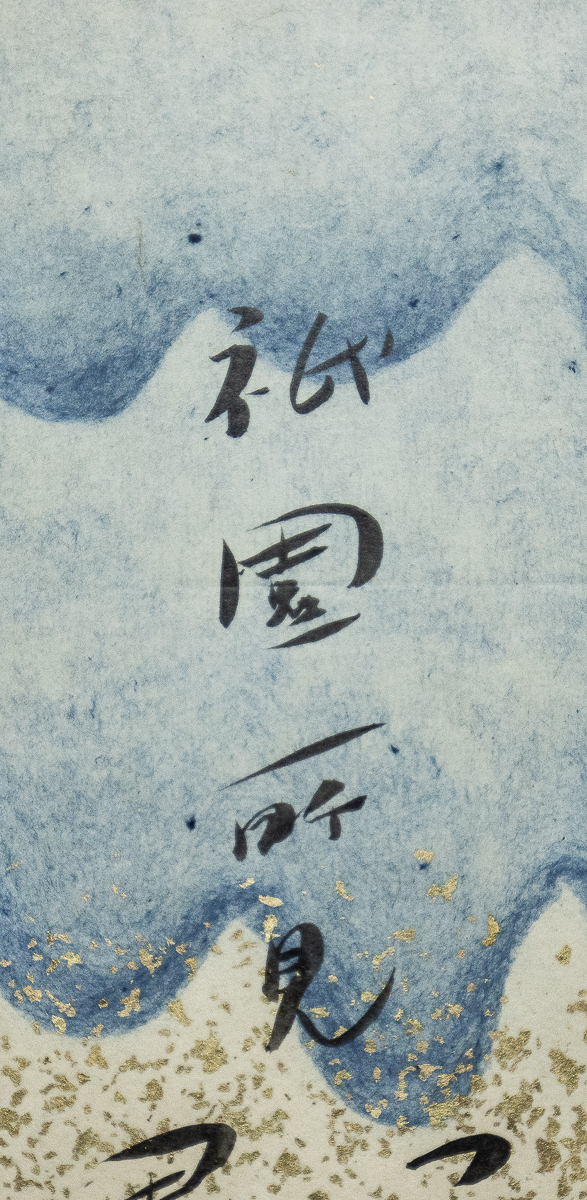 祇園所見